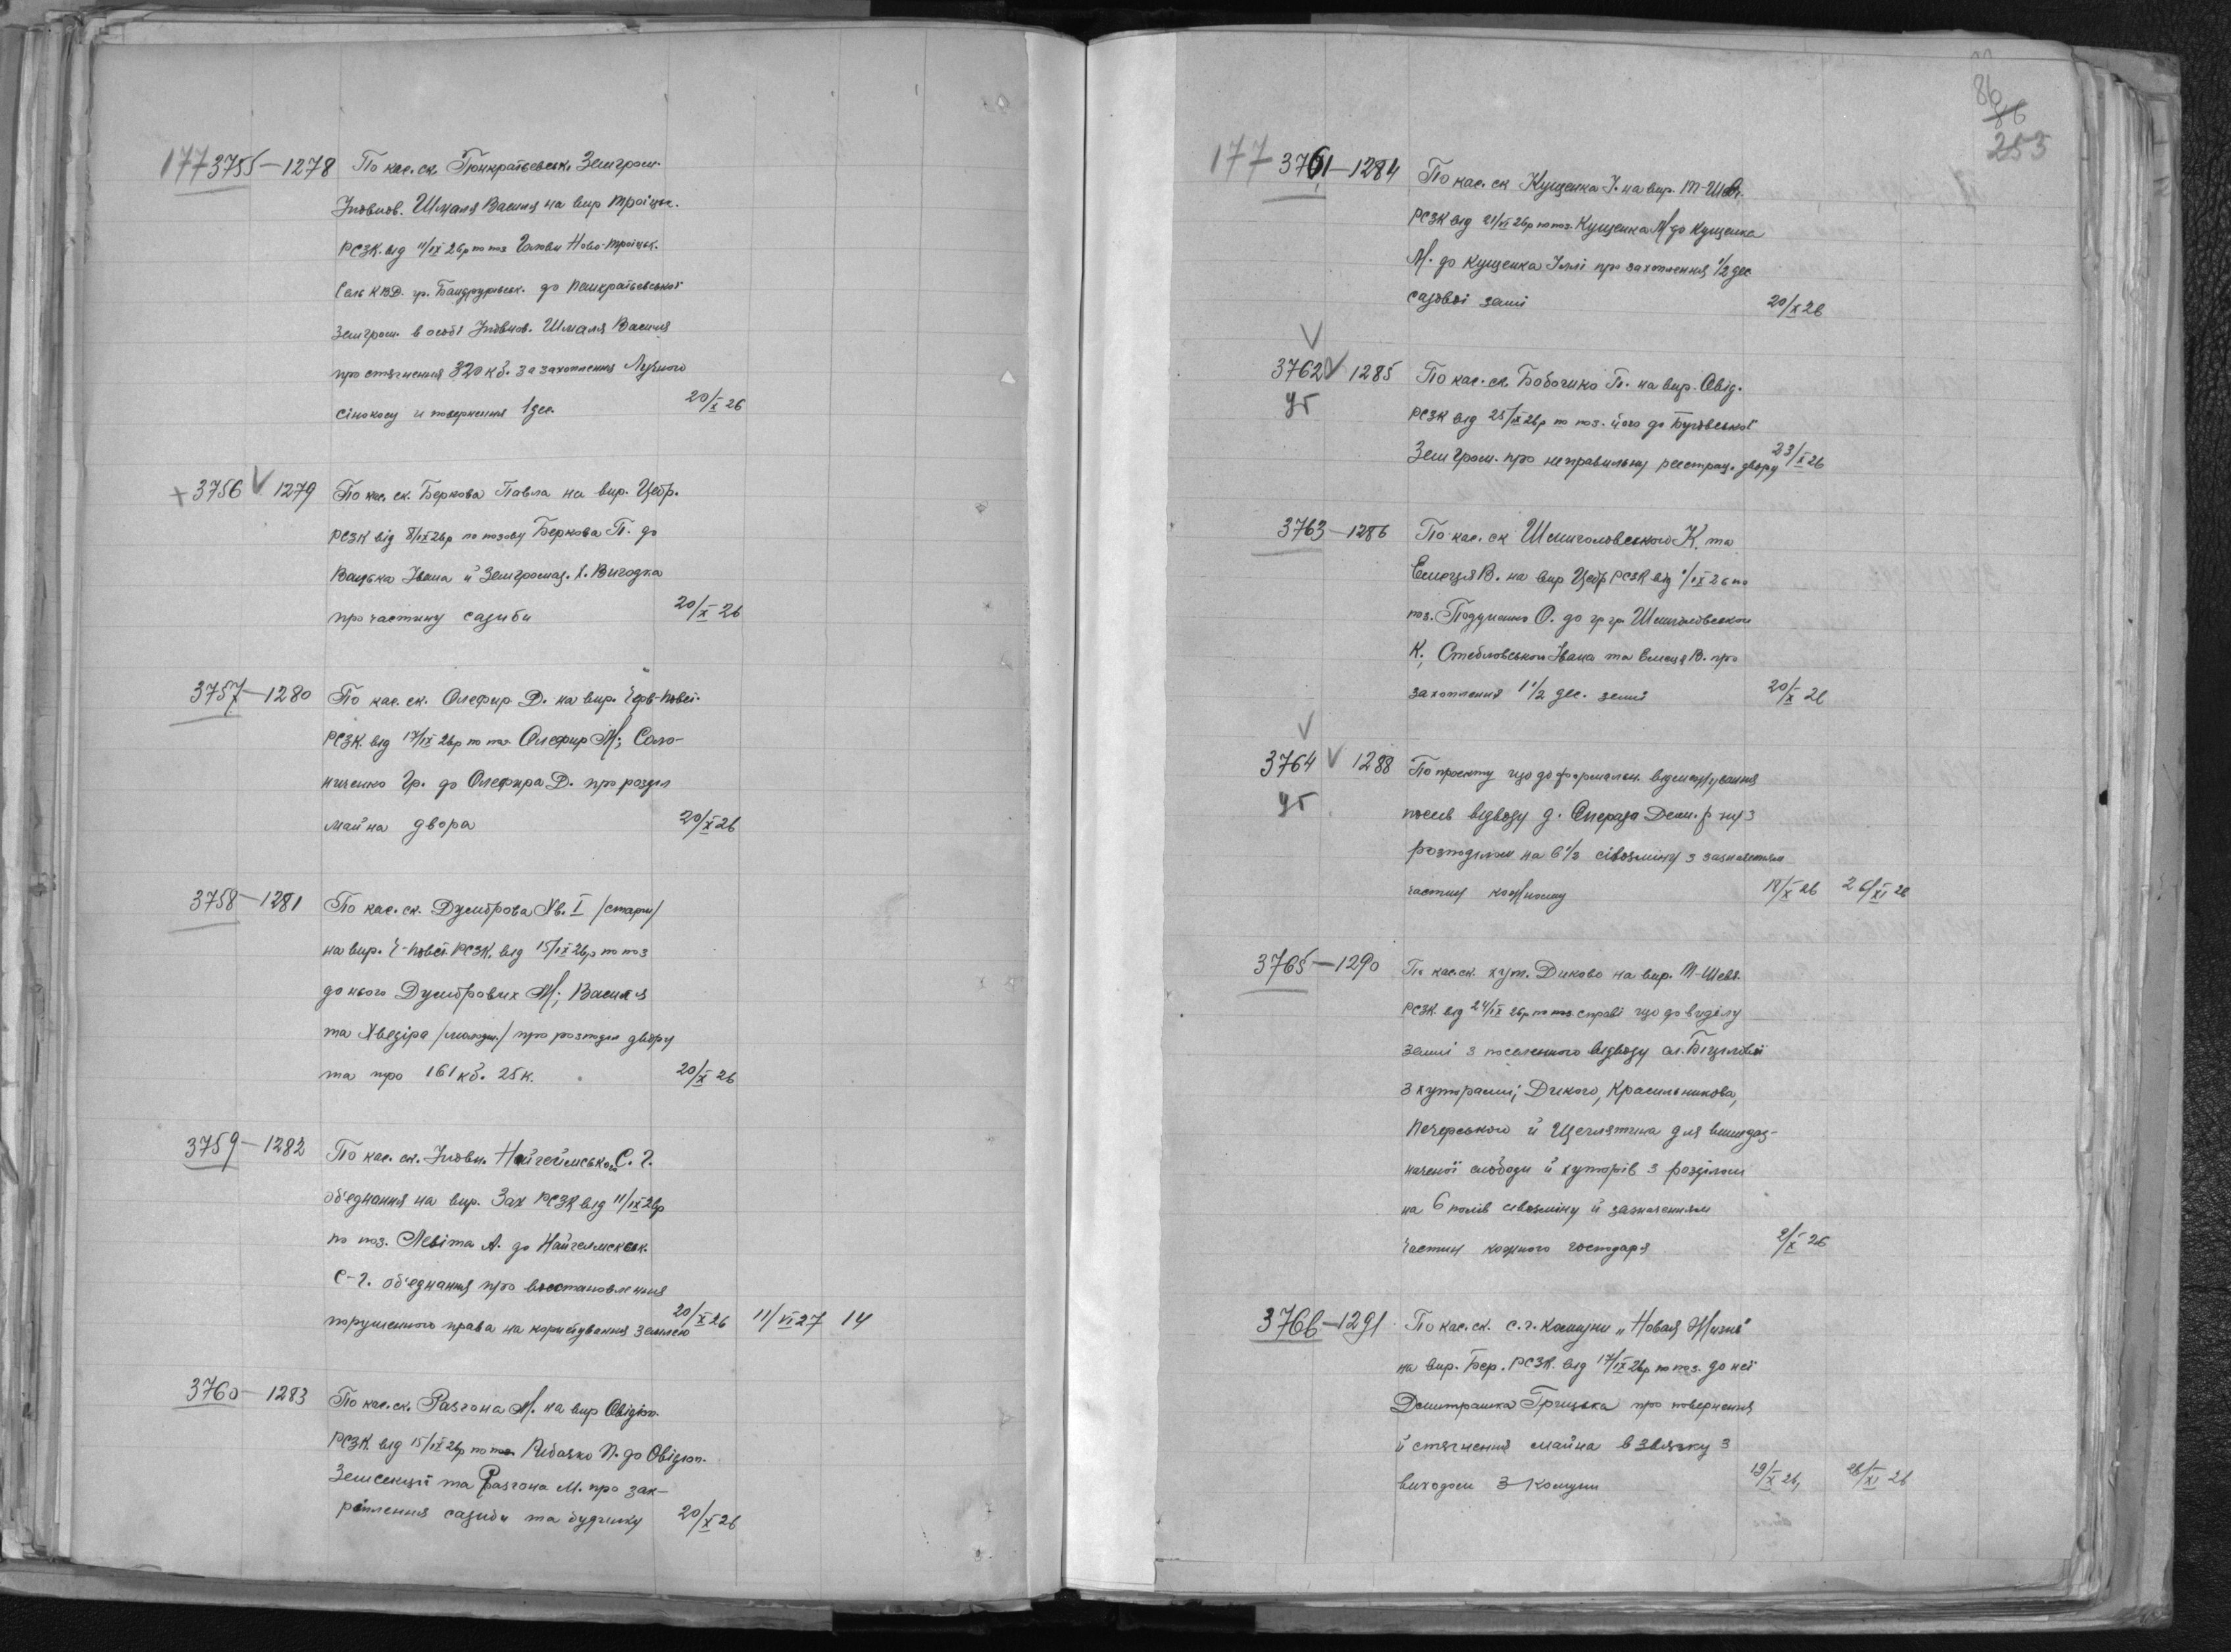 177 3755 — 1278 По кас. ск. Панкратьевськ. Земгром.
Уповнов. Шмаля Василя на вир Троїцьк.
РСЗК. від 11/IX 26р по поз Голови Ново-Троїцьк.
Сель КВД. гр. Бандуровськ. до Панкратьевської
Земгром. в особі Уповнов. Шмаля Василя
про стягнення 320 кб. за захоплення Лучного
сінокосу и повернення 1 дес. 20/X 26
+ 3756 V 1279 По кас. ск. Беркова Павла на вир. Цебр.
РСЗК від 8/IX 26р по позову Беркова П. до
Вацька Івана й Земгромад. х. Вигодка
про частину садиби 20/X 26
3757 — 1280 По кас. ск. Олефир Д. на вир. Черв-Повст.
РСЗК. від 17/IX 26р по поз. Олефир М; Соло-
ниченко Гр. до Олефира Д. про розділ
майна двора 20/X 26
3758 — 1281 По кас. ск. Думброва Хв. I /старш/
на вир. Ч-Повст. РСЗК. від 15/IX 26р по поз
до нього Думбрових М; Василя
та Хведіра /молодш./ про розподіл двору
та про 161 кб. 25 к. 20/X 26
3759 — 1282 По кас. ск. Уповн. Найгеймськой С. Г.
об'єднання на вир. Зах РСЗК від 11/IX 26р
по поз. Левіта А. до Найгеймськ.
С-Г. об'єднання про восстановлення
порушеного права на користування землею 20/X 26 11/VI 27 14
3760 — 1283 По кас. ск. Разгона М. на вир Овідіоп.
РСЗК від 15/IX 26р по поз. Рибачко П. до Овідіоп.
Земсекції та Разгона М. про зак-
ріплення садиби та будинку 20/X 26
86
86
253
177 3761 — 1284 По кас. ск Кущенка І. на вир. Т-Шевч.
РСЗК від 21/VI 26р по поз. Кущенка М до Кущенка
М. до Кущенка Іллі про захоплення 1/2 дес
садової землі 20/X 26
V
3762 V 1285 По кас. ск. Бобочико П. на вир. Овід.
РСЗК від 25/IX 26р по поз. його до
Земгром. про неправильну реєстрац. двору 23/X 26
3763 — 1286 По кас. ск Шишголовського К. та
Емеця В. на вир Цебр РСЗК від 1/IX 26 по
поз. О. до гр гр. Шишголовського
К; Стебловського Івана та Емеця В. про
захоплення 1 1/2 дес. землі 20/X 26
V
3764 V 1288 По проекту що до формальн. відмежування
посел. відводу д. Дем. р-ну з
розподілом на 6 1/3 сівозміну з зазначенням
частин кожному 18/X 26 26/XI 26
3765 — 1290 По кас. ск. хут. Дикого на вир. Т-Шевч.
РСЗК від 24/IX 26р по поз. справі що до виділу
землі з поселенного відводу сл.
з хуторами; Дикого, Красильникова,
Печерського й Щеглятина для вищезаз-
наченої слободи й хуторів з розділом
на 6 полів сівозміну й зазначенням
частин кожного господаря 2/X 26
3766 — 1291 По кас. ск. с. г. комуни „Новая Жизнь"
на вир. Бер. РСЗК. від 17/IX 26р по поз. до неї
Демитрашка Грицька про повернення
й стягнення майна в звязку з
виходом з комуни 19/X 26, 26/XI 26